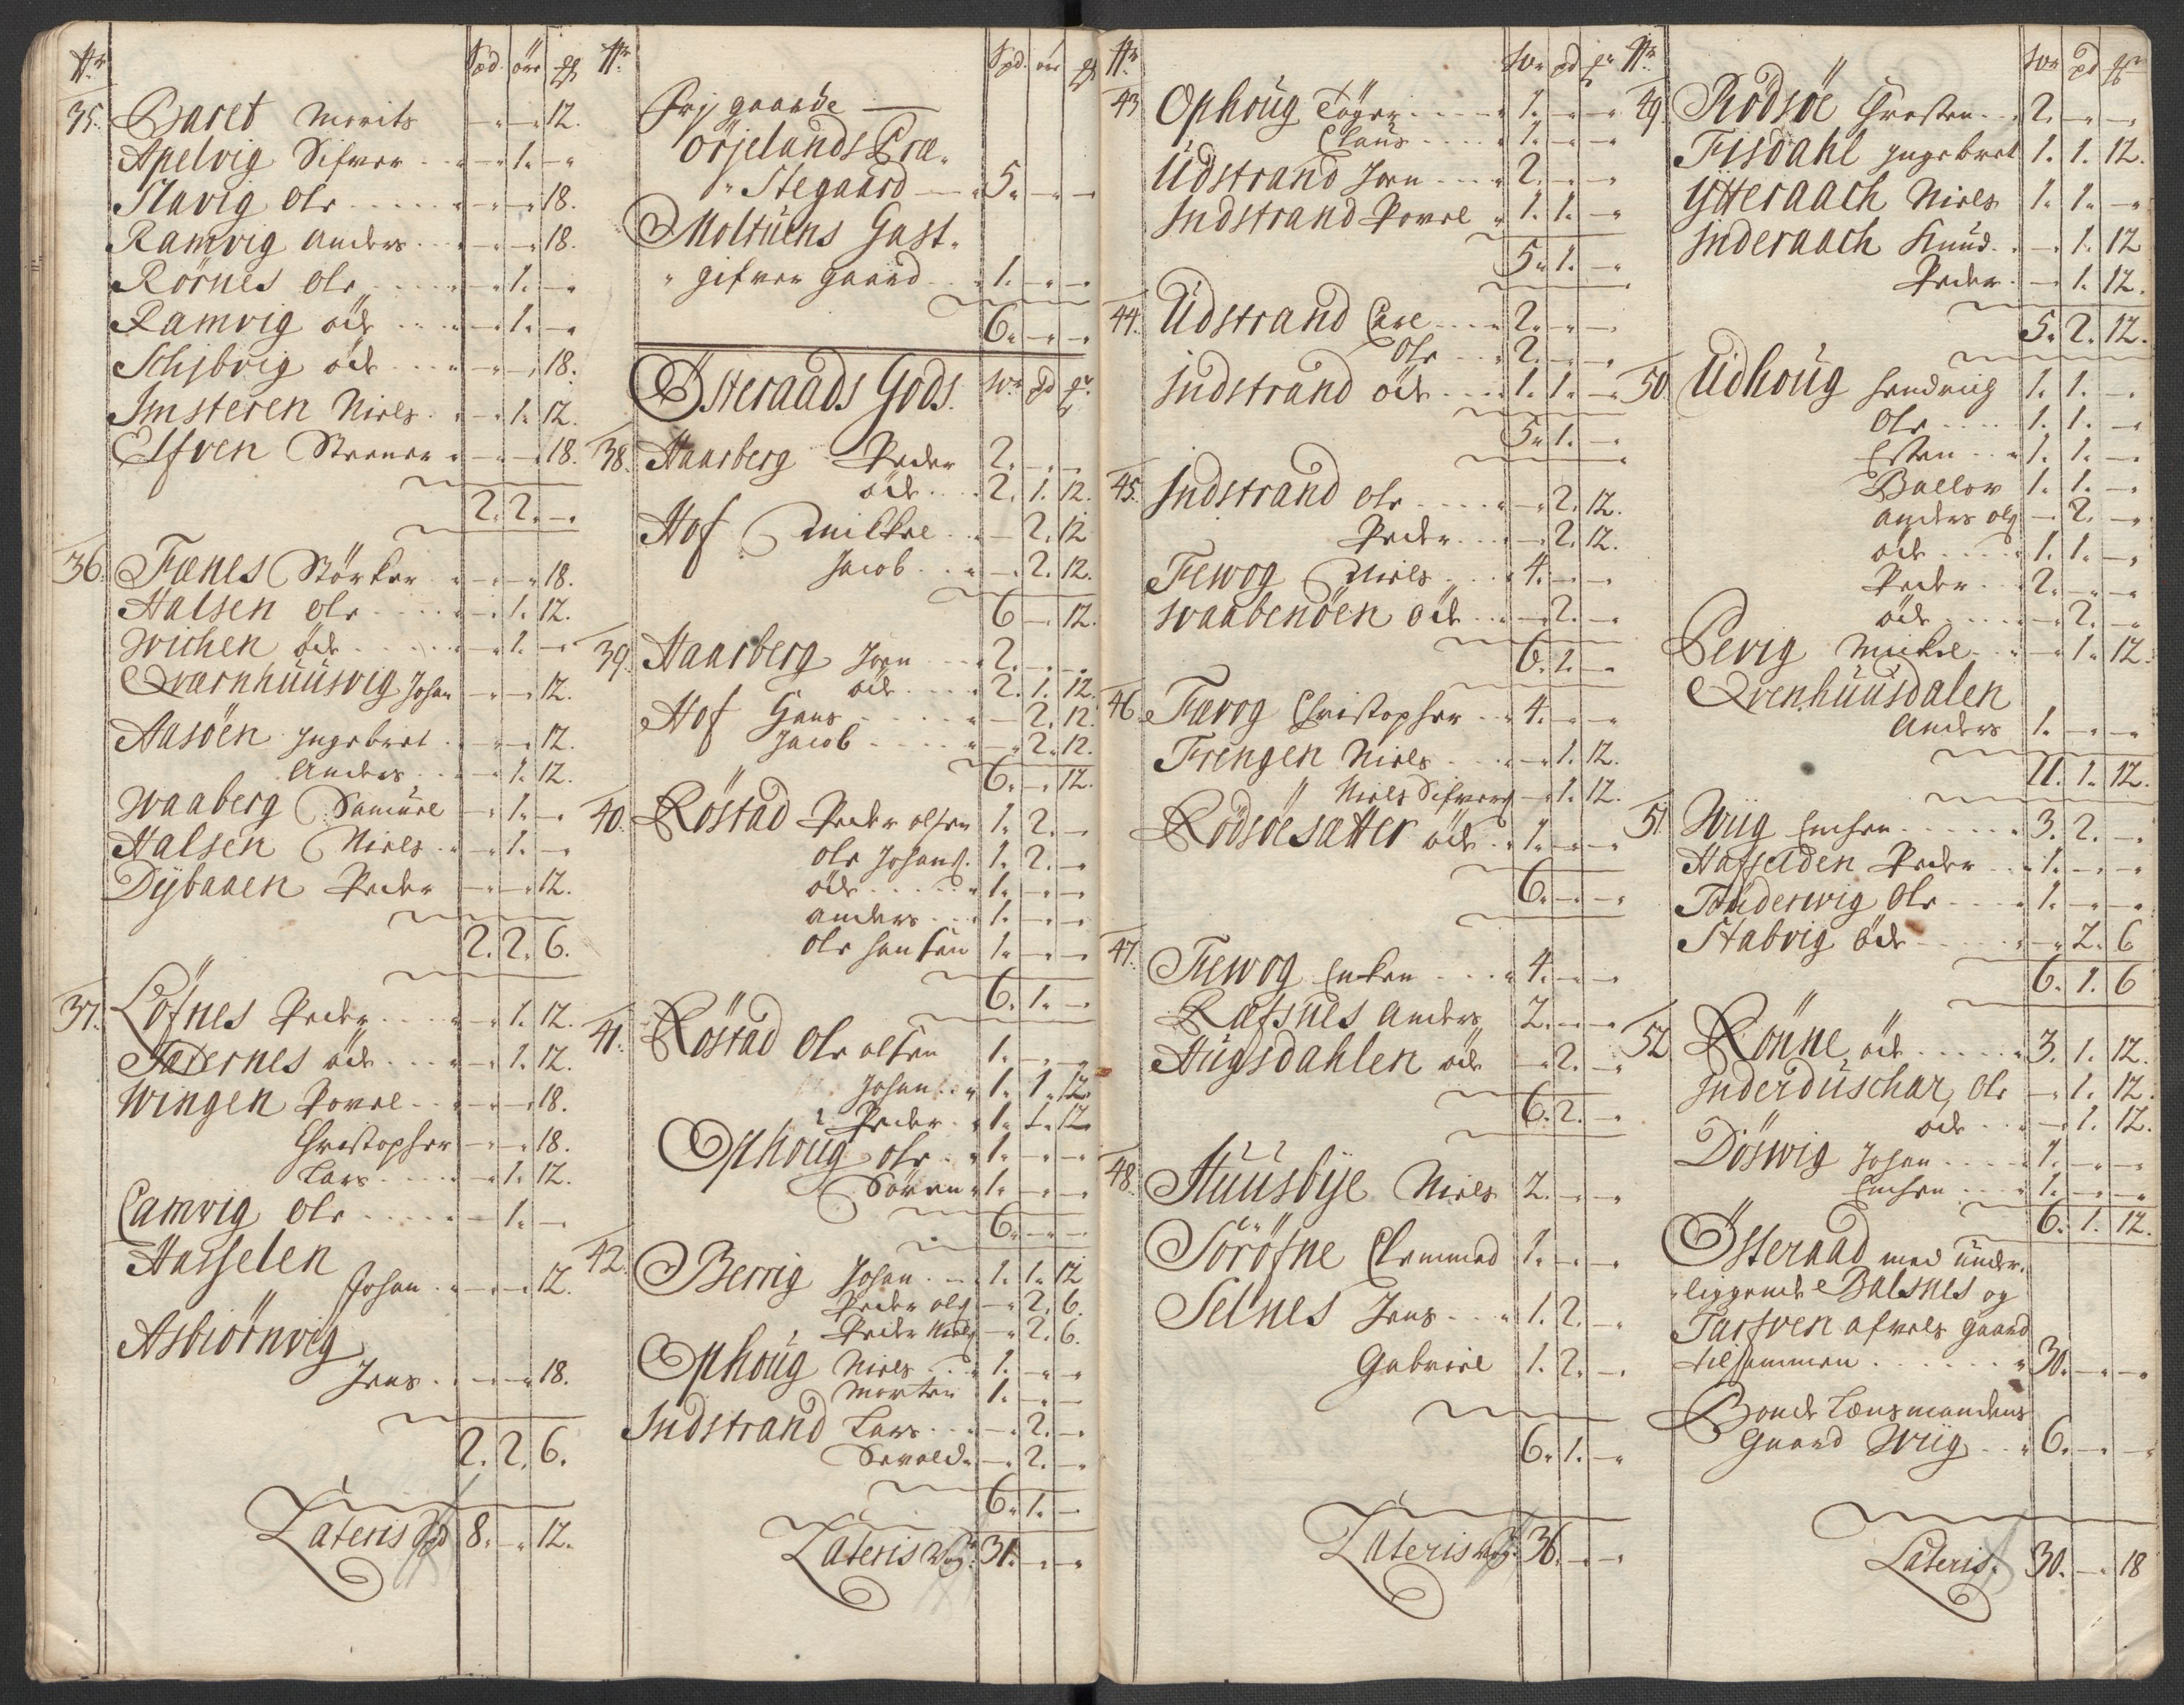 Nr. Spd. ört
35. Baret Morits - - 12.
Apelvig Sifver - 1. -
Slavig Ole - - 18.
Ramvig Anders - - 18.
Rörnes Ole - 1. -
Ramvig öde - 1. -
Schibvig öde - - 18.
Imsteren Niels - 1. 12.
Elfven Steener - - 18.
2. 2. -
36. Fænes Störker - - 18.
Halsen Ole - 1. 12.
Wichen öde - 1. -
Qværnhuusvig Johan - - 12.
Aasöen Ingebret - - 12.
Anders - 1. 12.
Waaberg Samuel - 1. -
Halsen Niels - 1. -
Dybaaen Peder - - 12.
2. 2. 6.
37. Löfnes Peder - 1. 12.
öde - 1. 12.
Wingen Povel - - 18.
Christopher - - 18.
Lars - 1. 12.
Camvig Ole - 1. -
Hasselen
Johan - - 12.
Asbiörnvig
Jens - - 18.
2. 2. 6.
Lateris Spd 8. - 12.
Nr. Spd. ört
Frij gaarde
Örjelands Præ-
Stegaard 5. - -
Moltuens Gast-
gifver gaard 1. - -
6. - -
Österaads Gods. Wo pd
38. Haarberg Peder 2. - -
öde 2. 1. 12.
Hof Mikkel - 2. 12
Jacob - 2. 12.
6 - 12.
39. Haarberg Jörn 2. - -
öde 2. 1. 12.
Hof Hans - 2. 12.
Jacob - 2. 12.
6. - 12.
40. Röstad Peder Olsen 1. 2. -
Ole Johans. 1. 2. -
öde 1. - -
Anders 1. - -
Ole Hansen 1. - -
6. 1. -
41. Röstad Ole Olsen 1. - -
Johan 1. 1. 12.
Peder 1. 1. 12.
Ophoug Ole 1. - -
Sören 1. - -
6. - -
42. Berrig Johan 1. 1. 12
Peder Ols - 2. 6.
Peder Niels - 2. 6.
Ophoug Niels 1. - -
Morten 1. - -
Indstrand Lars - 2. -
Sevald - 2. -
6. 1. -
Lateris Wog. 31. - -
Nr. Wo pd
43 Ophoug Töger 1. - -
Claus 1. - -
Udstrand Jörn 2. - -
Indstrand Povel 1. 1. -
5. 1. -
44. Udstrand Carl 2. - -
Ole 2. - -
Indstrand öde 1. 1. -
5. 1. -
45. Indstrand Ole - 2. 12.
Peder - 2. 12.
Fewog Niels 4. - -
Waabenöen öde - 2. -
6. 1. -
46. Fævog Christopher 4. - -
Frengen Niels - 1. 12.
" Niels Sifvers - 1. 12.
Rödsöesætter öde 1. - -
6. - -
47. Fewog Enken 4. - -
Rafsnes Anders 2. - -
Hugsdahlen öde - 2. -
6. 2. -
48. Huusbye Niels 2. - -
Söröfne Clemmed 1. - -
Selnes Jens 1. 2. -
Gabriel 1. 2. -
6. 1. -
Lateris Wog. 36. - -
Nr. Wo pd
49. Rödsöe Christen 2. - -
Fisdahl Ingebret 1. 1. 12.
Ytteraach Niels 1. 1. -
Inderaach Knud - 1. 12
Peder - 1. 12.
5. 2. 12.
50. Udhoug Hendrich 1. 1. -
Ole 1. 1. -
Esten 1. 1. -
Balser 1. 1. -
Anders Ols - 2. -
öde 1. 1. -
Peder 2. - -
öde - 2. -
Bervig Mickel - 1. 12.
Qvenhuusdalen
Anders 1. - -
11. 1. 12.
51. Wiig Enchen 3. 2. -
Hasselden Peder 1. - -
Ole 1. - -
Stabvig öde - 2. 6
6. 1. 6
52. Rönne öde 3. 1. 12.
Inderduschar, Ole - 1. 12.
öde - 1. 12.
Döswig Johan 1. - -
Enchen 1. - -
6. 1. 12.
Österaad med under-
liggende Balsnes og
Tarfven afvels gaard
tilsammen 30. - -
Bonde Lænsmandens
Gaard Wiig 6. - -
Lateris. 30. - 18